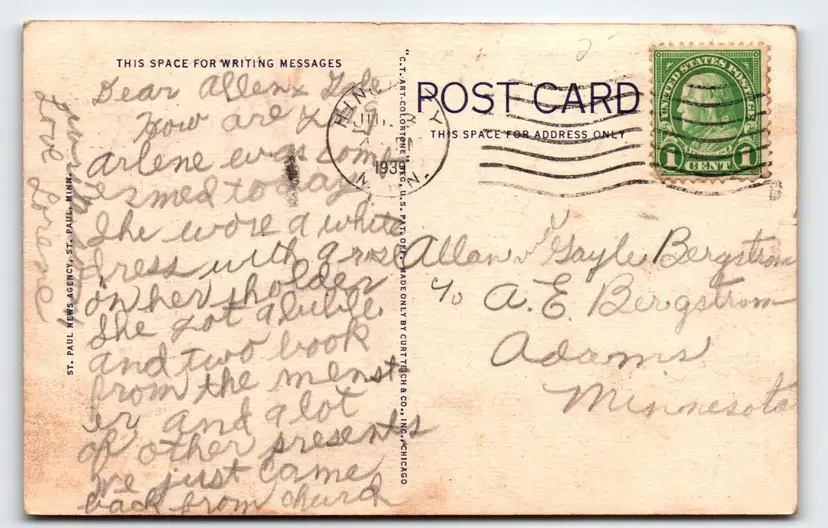 THIS SPACE FOR WRITING MESSAGES
Dear Allen & Gale
How are you
Arlene was comp
esmed today
She wore a white
dress with a rose
on her sholder
She got a bible
and two book
from the menst
er and a lot
of other presents
we just came
back from church
Love Lorene
ST. PAUL NEWS AGENCY, ST. PAUL, MINN.
"C.T. ART-COLORTONE" REG. U.S. PAT. OFF. MADE ONLY BY CURT TEICH & CO., INC., CHICAGO
POST CARD
THIS SPACE FOR ADDRESS ONLY
MINN.
193
UNITED STATES POSTAGE
1 CENT 1
Allan & Gayle Bergstrom
c/o A.E. Bergstrom
Adams
Minnesota